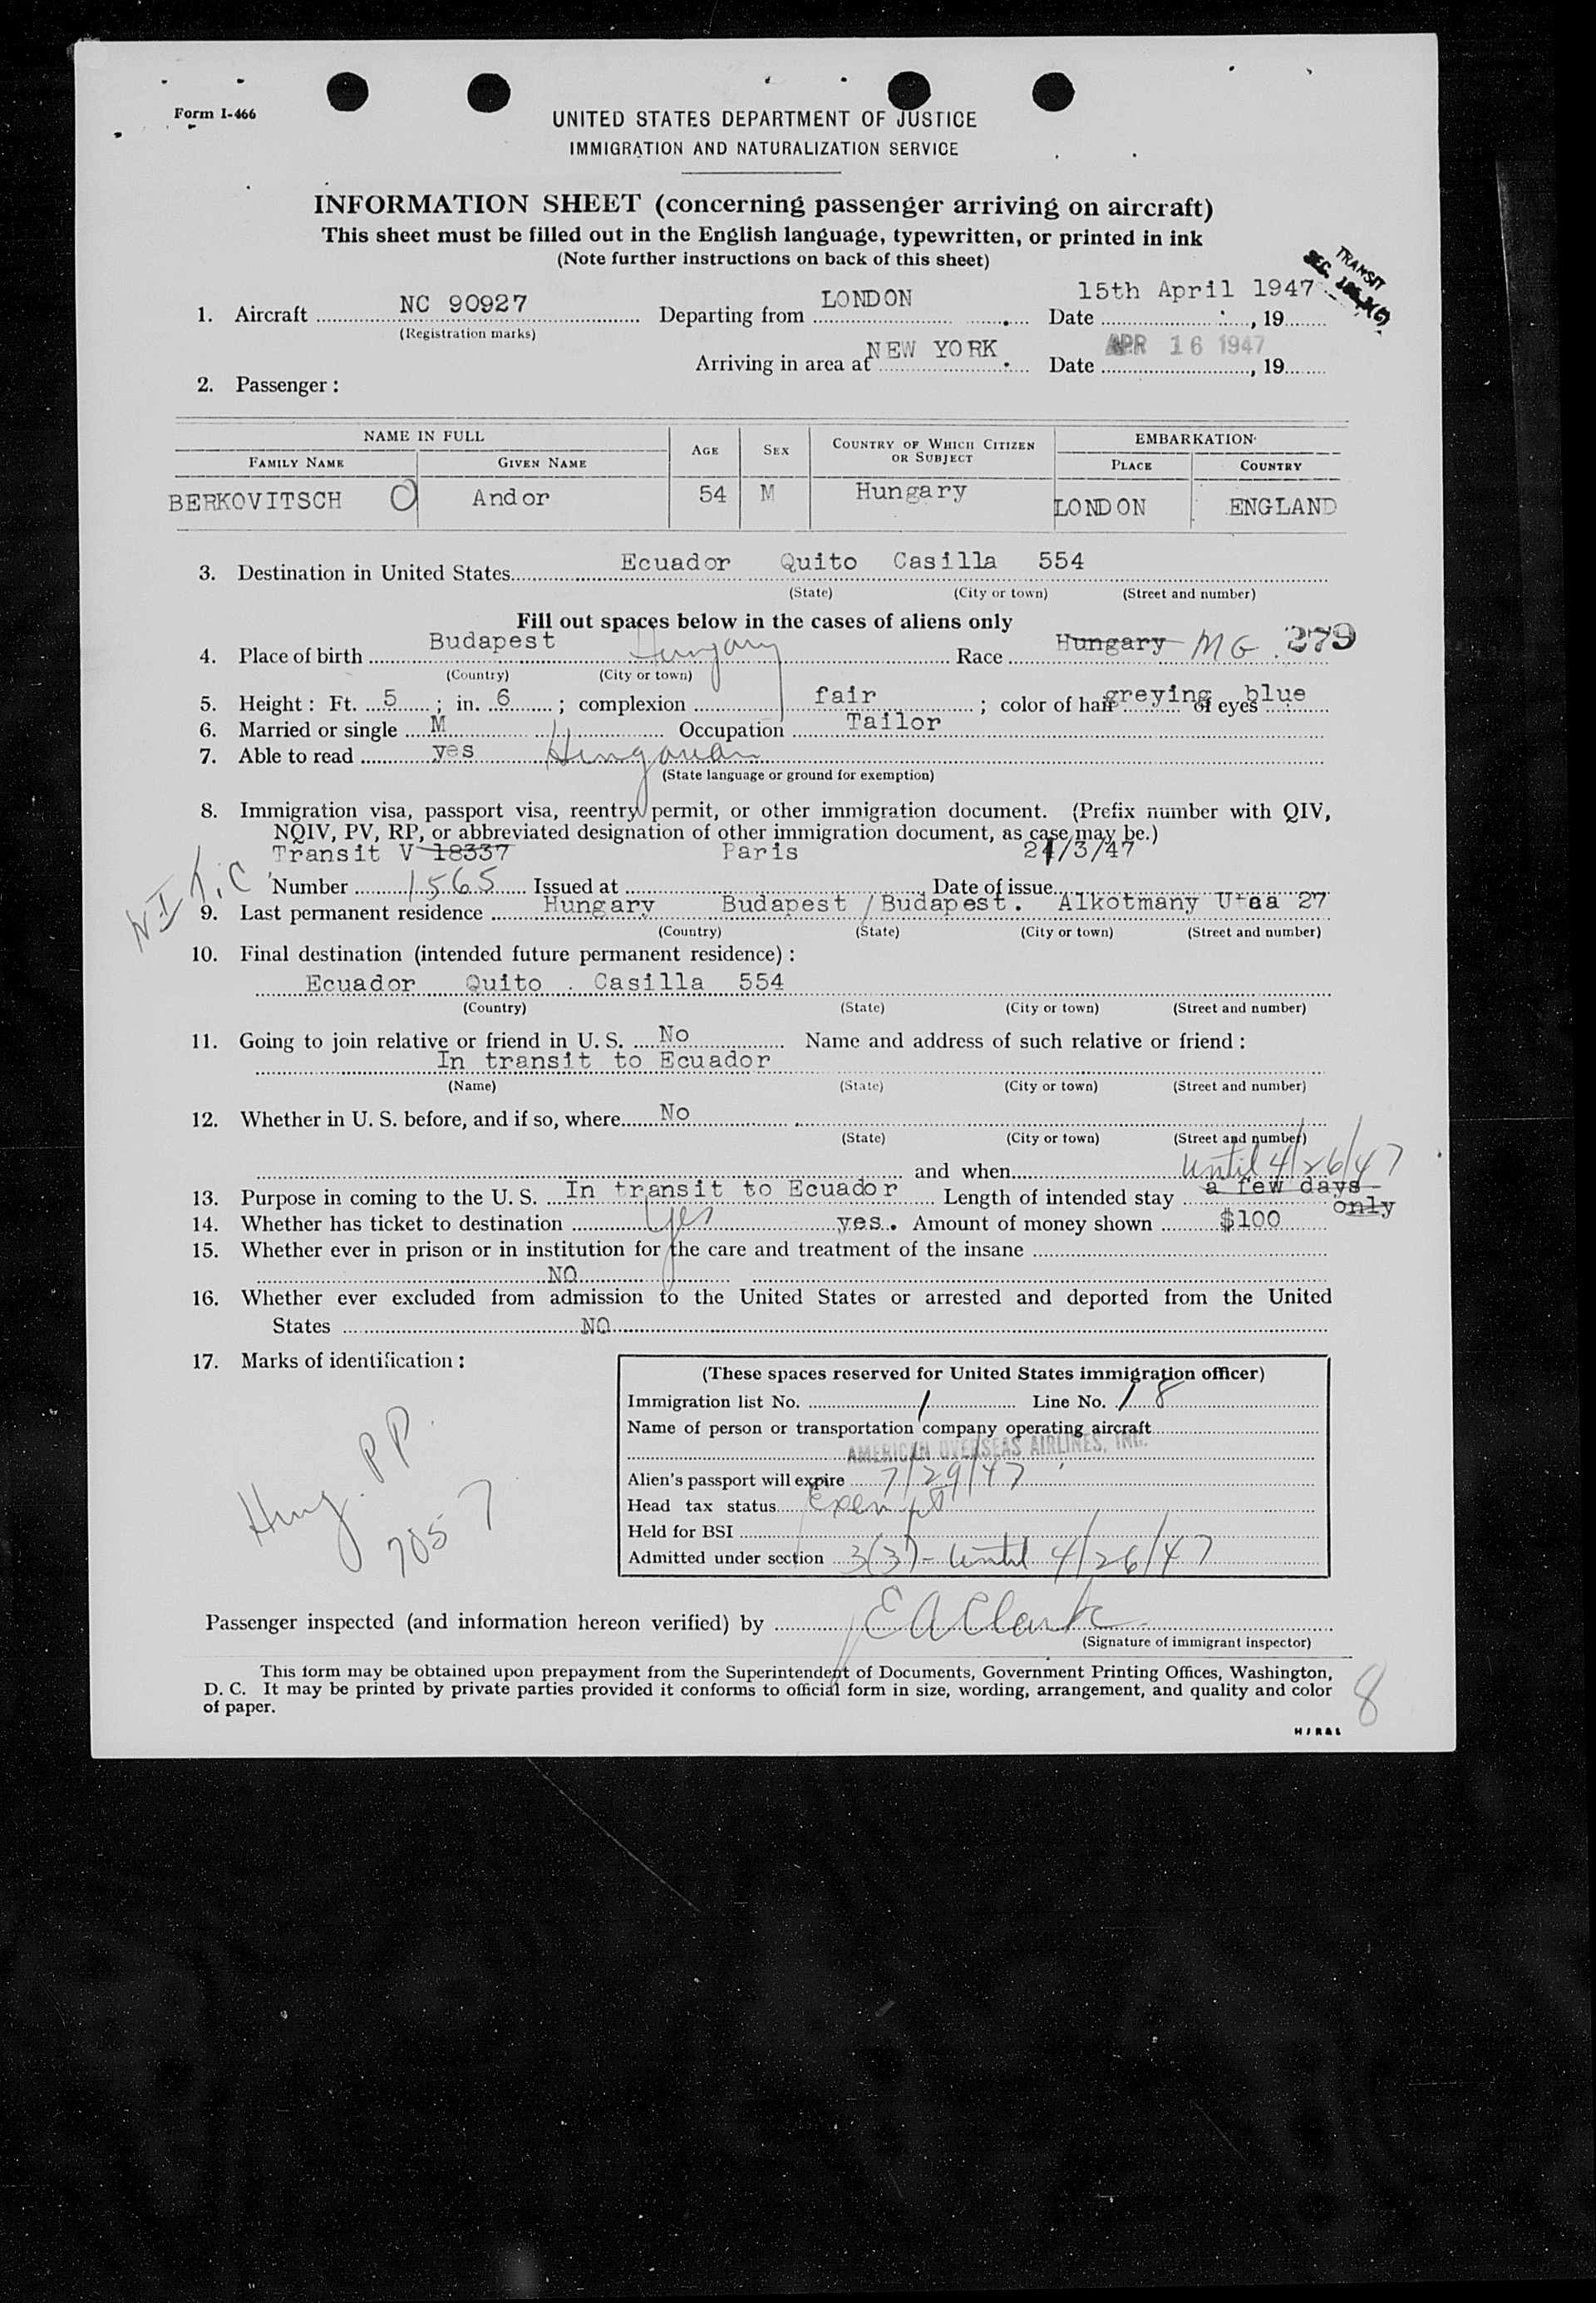 Form I-466
UNITED STATES DEPARTMENT OF JUSTICE
IMMIGRATION AND NATURALIZATION SERVICE
INFORMATION SHEET (concerning passenger arriving on aircraft)
This sheet must be filled out in the English language, typewritten, or printed in ink
(Note further instructions on back of this sheet)
TRANSIT
SEC.
1. Aircraft NC 90927 Departing from LONDON Date 15th April 1947, 19
(Registration marks)
Arriving in area at NEW YORK Date APR 16 1947, 19
2. Passenger:
NAME IN FULL AGE SEX COUNTRY OF WHICH CITIZEN OR SUBJECT EMBARKATION
FAMILY NAME GIVEN NAME PLACE COUNTRY
BERKOVITSCH O Andor 54 M Hungary LONDON ENGLAND
3. Destination in United States Ecuador Quito Casilla 554
(State) (City or town) (Street and number)
Fill out spaces below in the cases of aliens only
4. Place of birth Budapest Hungary Race Hungary MG 279
(Country) (City or town)
5. Height: Ft. 5; in. 6; complexion fair; color of hair greying of eyes blue
6. Married or single M Occupation Tailor
7. Able to read yes Hungarian
(State language or ground for exemption)
8. Immigration visa, passport visa, reentry permit, or other immigration document. (Prefix number with QIV,
NQIV, PV, RP, or abbreviated designation of other immigration document, as case may be.)
Transit V 18337 Paris 24/3/47
Number 1565 Issued at Date of issue
9. Last permanent residence Hungary Budapest / Budapest. Alkotmany 27
(Country) (State) (City or town) (Street and number)
10. Final destination (intended future permanent residence):
Ecuador Quito . Casilla 554
(Country) (State) (City or town) (Street and number)
11. Going to join relative or friend in U. S. No Name and address of such relative or friend:
In transit to Ecuador
(Name) (State) (City or town) (Street and number)
12. Whether in U. S. before, and if so, where No
(State) (City or town) (Street and number)
and when until 4/26/47
13. Purpose in coming to the U. S. In transit to Ecuador Length of intended stay a few days only
14. Whether has ticket to destination yes yes. Amount of money shown $100
15. Whether ever in prison or in institution for the care and treatment of the insane
NO
16. Whether ever excluded from admission to the United States or arrested and deported from the United
States NO
17. Marks of identification:
Hung. PP.
7057
(These spaces reserved for United States immigration officer)
Immigration list No. 1 Line No. 18
Name of person or transportation company operating aircraft
AMERICAN OVERSEAS AIRLINES, INC.
Alien's passport will expire 7/29/47
Head tax status Exempt
Held for BSI
Admitted under section 3(3) - until 4/26/47
Passenger inspected (and information hereon verified) by E A Clark
(Signature of immigrant inspector)
This form may be obtained upon prepayment from the Superintendent of Documents, Government Printing Offices, Washington,
D. C. It may be printed by private parties provided it conforms to official form in size, wording, arrangement, and quality and color
of paper.
8